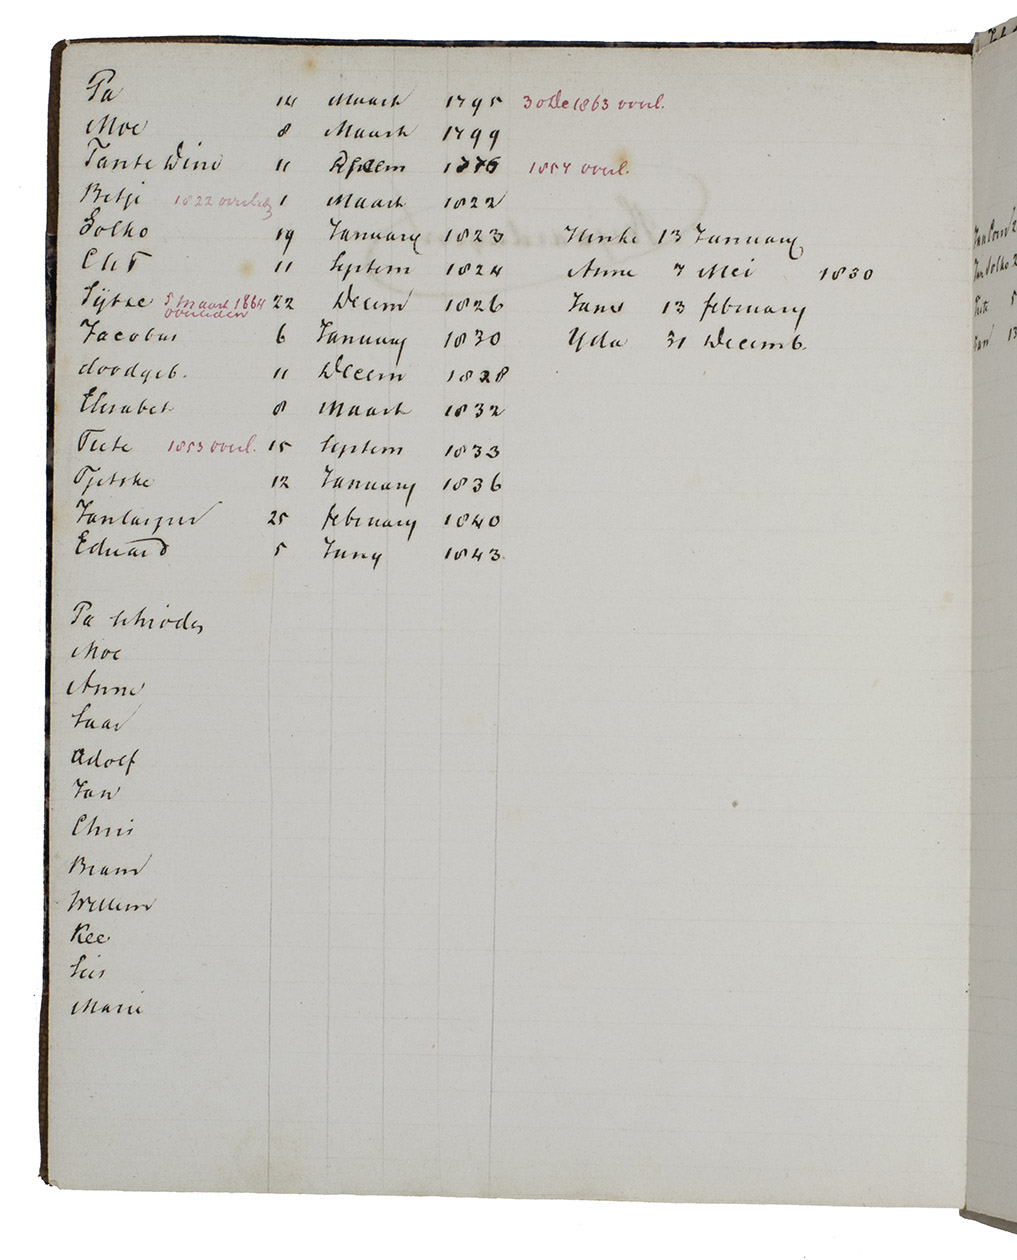 Pa 14 Maart 1795 30 De 1863 overl.
Moe 8 Maart 1799
Tante Wine 11 1776 1857 overl.
Betje 1822 overled 1 Maart 1822
Solko 19 January 1823 Hinke 13 January
CHT 11 Septem 1824 Anna 7 Mei 1830
Sijtze 5 Maart 1864 overleden 22 Decem 1826 Jans 13 februarij
Jacobus 6 January 1830 Yda 31 Decemb.
doodgeb. 11 Decem 1828
Elisabet 8 Maart 1832
Teete 1853 overl. 15 Septem 1833
Tjetske 12 January 1836
Jancasper 25 february 1840
Eduard 5 Juny 1843.
Pa Schroder
Moe
Anne
Saar
Adolf
Jan
Chris
Bram
Willem
Kee
Sies
Marie